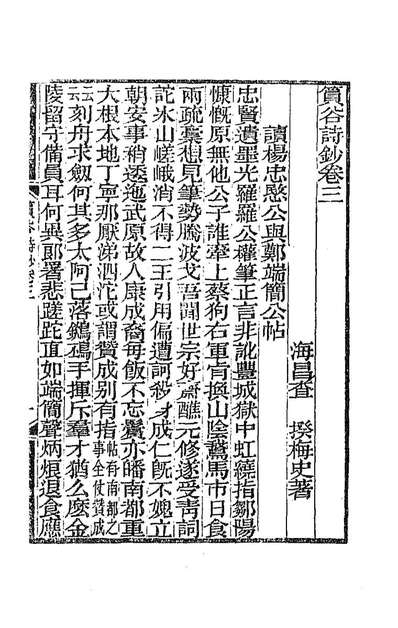 篔谷詩鈔卷三
海昌查 撰梅史著
讀楊忠愍公與鄭端簡公帖
忠賢遺墨光羅羅公權筆正言非訛豐城獄中虹繞指鄒陽
慷慨原無他公子誰牽上蔡狗右軍肯換山陰鵞馬市日食
兩疏彙想見筆勢騰波戈吾聞世宗好齋醮元修遂受靑詞
詑氷山嵯峨消不得二王引用偏遭訶殺身成仁旣不媿立
朝安事稍逶迤武原故人康成裔每飯不忘鬢亦皤南都重
大根本地丁寧那厭涕泗沱或謂贊成别有指帖有南都之事全仗贊成
云云刻舟求劒何其多太阿已落鵜鴣手揮斥羣才猶么麽金
陵留守備員耳何異郎署悲蹉跎直如端簡聲炳烜退食應
篔谷詩鈔卷三 一